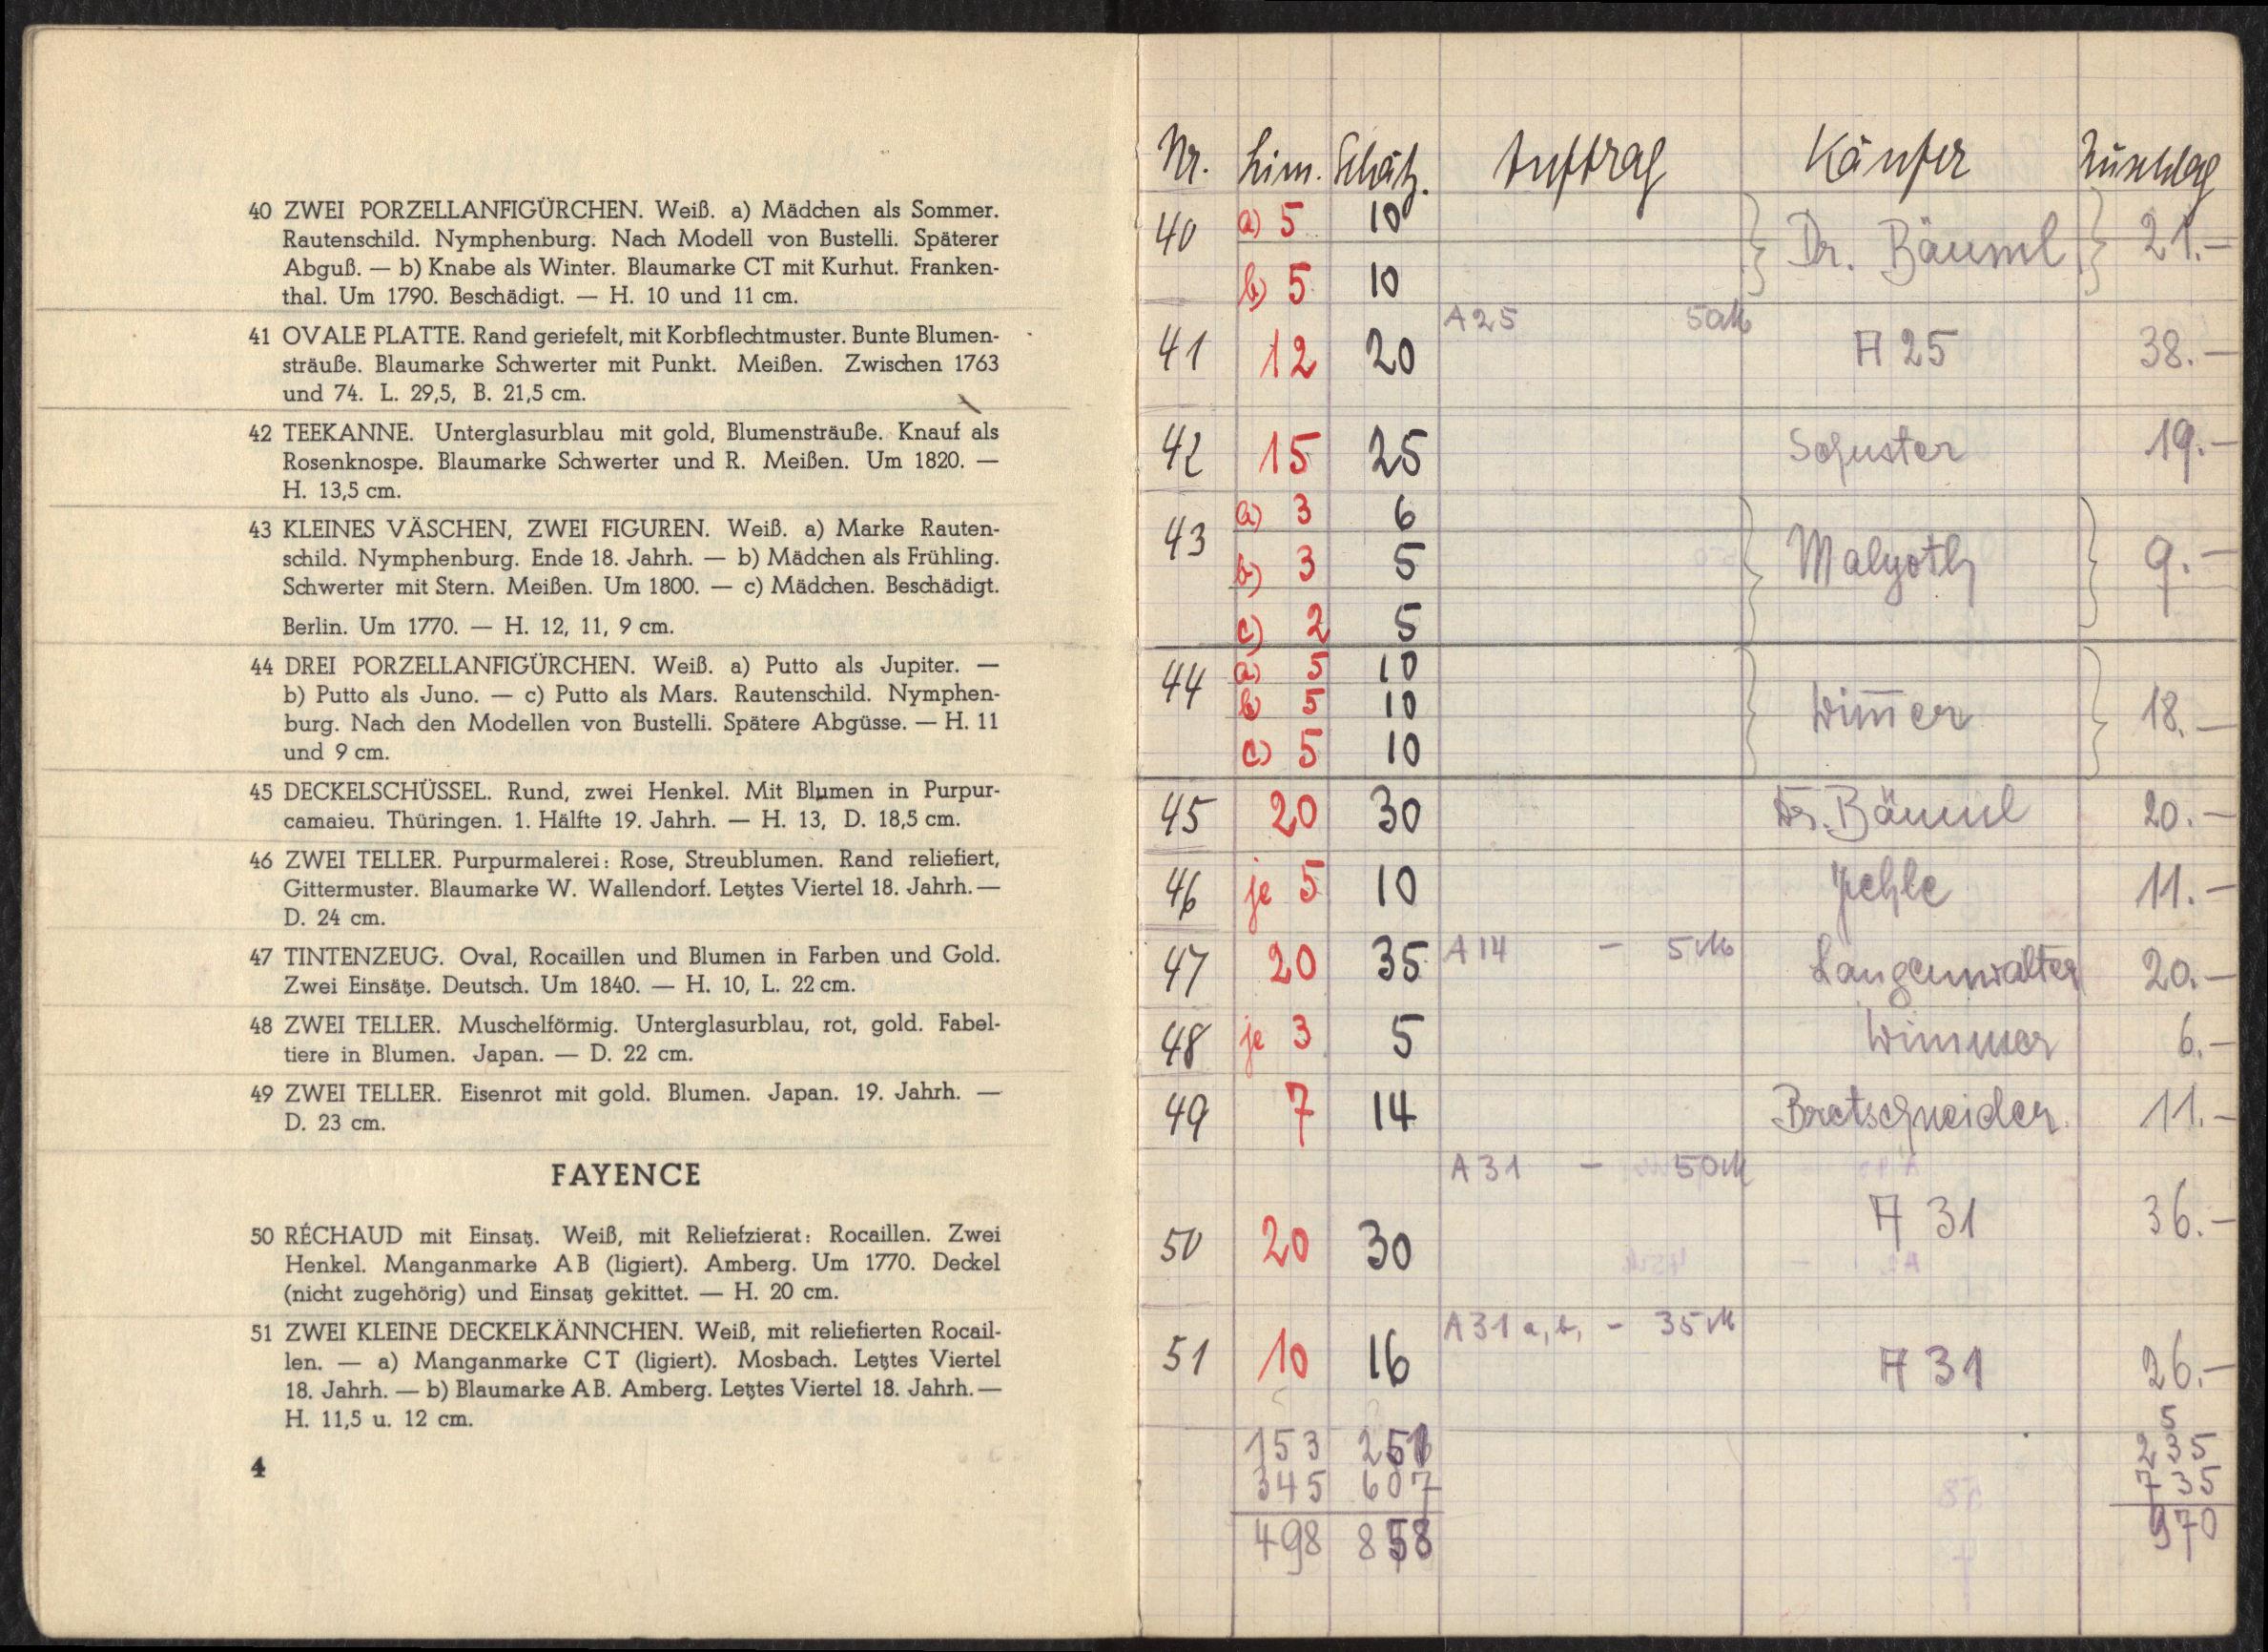 40 ZWEI PORZELLANFIGÜRCHEN. Weiß. a) Mädchen als Sommer.
Rautenschild. Nymphenburg. Nach Modell von Bustelli. Späterer
Abguß. — b) Knabe als Winter. Blaumarke CT mit Kurhut. Franken-
thal. Um 1790. Beschädigt. — H. 10 und 11 cm.
41 OVALE PLATTE. Rand geriefelt, mit Korbflechtmuster. Bunte Blumen-
sträuße. Blaumarke Schwerter mit Punkt. Meißen. Zwischen 1763
und 74. L. 29,5, B. 21,5 cm.
42 TEEKANNE. Unterglasurblau mit gold, Blumensträuße. Knauf als
Rosenknospe. Blaumarke Schwerter und R. Meißen. Um 1820. —
H. 13,5 cm.
43 KLEINES VÄSCHEN, ZWEI FIGUREN. Weiß. a) Marke Rauten-
schild. Nymphenburg. Ende 18. Jahrh. — b) Mädchen als Frühling.
Schwerter mit Stern. Meißen. Um 1800. — c) Mädchen. Beschädigt.
Berlin. Um 1770. — H. 12, 11, 9 cm.
44 DREI PORZELLANFIGÜRCHEN. Weiß. a) Putto als Jupiter. —
b) Putto als Juno. — c) Putto als Mars. Rautenschild. Nymphen-
burg. Nach den Modellen von Bustelli. Spätere Abgüsse. — H. 11
und 9 cm.
45 DECKELSCHÜSSEL. Rund, zwei Henkel. Mit Blumen in Purpur-
camaieu. Thüringen. 1. Hälfte 19. Jahrh. — H. 13, D. 18,5 cm.
46 ZWEI TELLER. Purpurmalerei: Rose, Streublumen. Rand reliefiert,
Gittermuster. Blaumarke W. Wallendorf. Letztes Viertel 18. Jahrh. —
D. 24 cm.
47 TINTENZEUG. Oval, Rocaillen und Blumen in Farben und Gold.
Zwei Einsätze. Deutsch. Um 1840. — H. 10, L. 22 cm.
48 ZWEI TELLER. Muschelförmig. Unterglasurblau, rot, gold. Fabel-
tiere in Blumen. Japan. — D. 22 cm.
49 ZWEI TELLER. Eisenrot mit gold. Blumen. Japan. 19. Jahrh. —
D. 23 cm.
FAYENCE
50 RÉCHAUD mit Einsatz. Weiß, mit Reliefzierat: Rocaillen. Zwei
Henkel. Manganmarke AB (ligiert). Amberg. Um 1770. Deckel
(nicht zugehörig) und Einsatz gekittet. — H. 20 cm.
51 ZWEI KLEINE DECKELKÄNNCHEN. Weiß, mit reliefierten Rocail-
len. — a) Manganmarke CT (ligiert). Mosbach. Letztes Viertel
18. Jahrh. — b) Blaumarke AB. Amberg. Letztes Viertel 18. Jahrh. —
H. 11,5 u. 12 cm.
4
Nr. Lim. Schätz. Auftrag Käufer Zuschlag
40 a) 5 10 Dr. Bäuml 21.—
b) 5 10
A25 50M
41 12 20 A 25 38.—
42 15 25 Schuster 19.—
43 a) 3 6 Malyoth 9.—
b) 3 5
c) 2 5
44 a) 5 10 Wim̅er 18.—
b) 5 10
c) 5 10
45 20 30 Dr. Bäuml 20.—
46 je 5 10 Jehle 11.—
47 20 35 A14 — 5M Langenwalter 20.—
48 je 3 5 Wimmer 6.—
49 7 14 Bretschneider 11.—
A31 — 50M
50 20 30 A 31 36.—
A31 a, b, — 35M
51 10 16 A 31 26.—
5
153 251 235
345 607 735
498 858 970